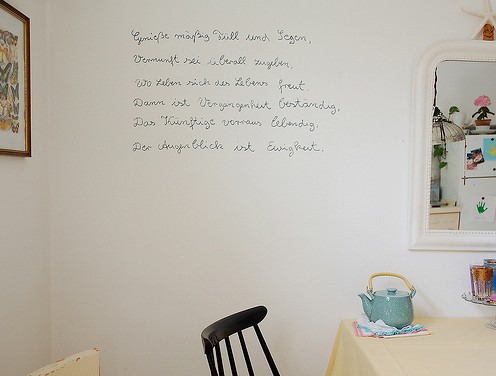 Genieße mäßig Füll und Segen,
Vernunft sei überall zugeben,
Wo Leben sich des Lebens freut.
Dann ist Vergangenheit beständig,
Das Künftige vorraus lebendig,
Der Augenblick ist Ewigkeit.